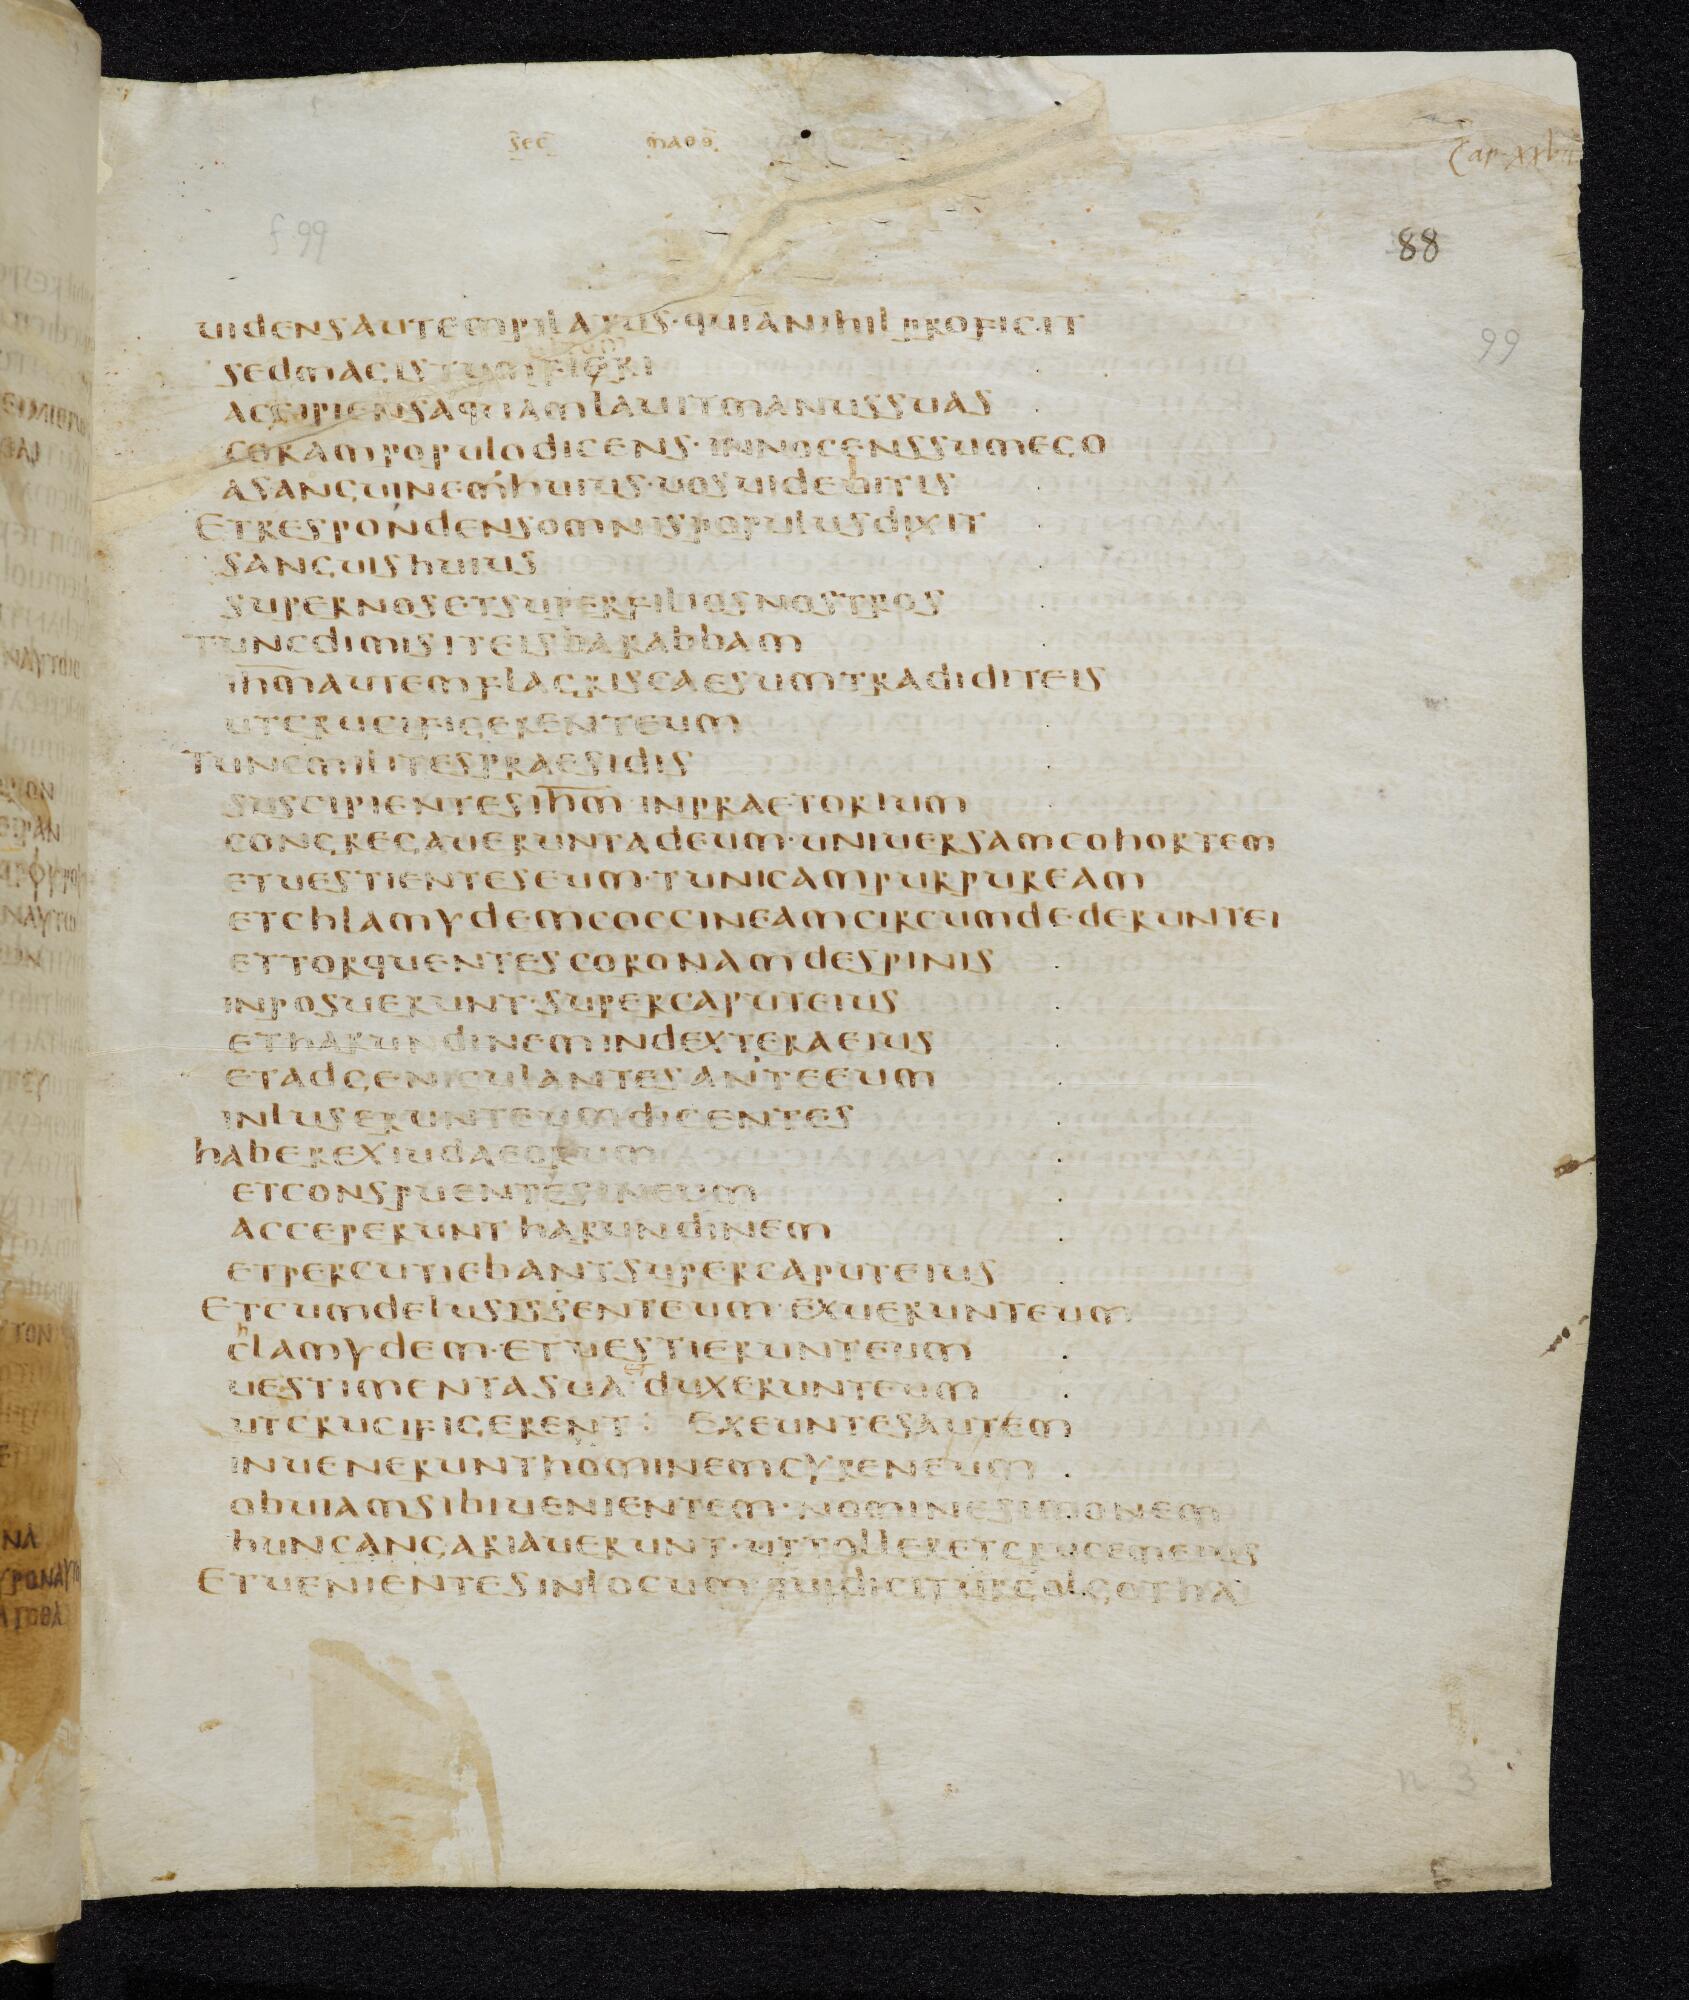 sec math
Cap. XXVII
f. 99
88
99
uidens autem pilatus · quia nihil proficit
sed magis tum fieri
accipiens aquam lauit manus suas
coram populo dicens · innocens sum ego
a sanguinem huius · uos uidebitis
Et respondens omnis populus dixit
sanguis huius
super nos et super filios nostros
Tunc dimisit eis barabbam
ihm autem flagris caesum tradidit eis
ut crucifigerent eum
Tunc milites praesidis
suscipientes ihm in praetorium
congregauerunt ad eum · uniuersam cohortem
et uestientes eum · tunicam purpuream
et chlamydem coccineam circumdederunt ei
et torquentes coronam de spinis
inposuerunt · super caput eius
et harundinem in dextera eius
et adgeniculantes ante eum
inluserunt eum dicentes
habe rex iudaeorum
et conspuentes in eum
acceperunt harundinem
et percutiebant super caput eius
Et cum delusissent eum · exuerunt eum
chlamydem · et uestierunt eum
uestimenta sua et duxerunt eum
ut crucifigerent : Exeuntes autem
inuenerunt hominem cyreneum
obuiam sibi uenientem · nomine simonem
hunc angariauerunt · ut tolleret crucem eius
Et uenientes in locum · qui dicitur golgotha
n 3